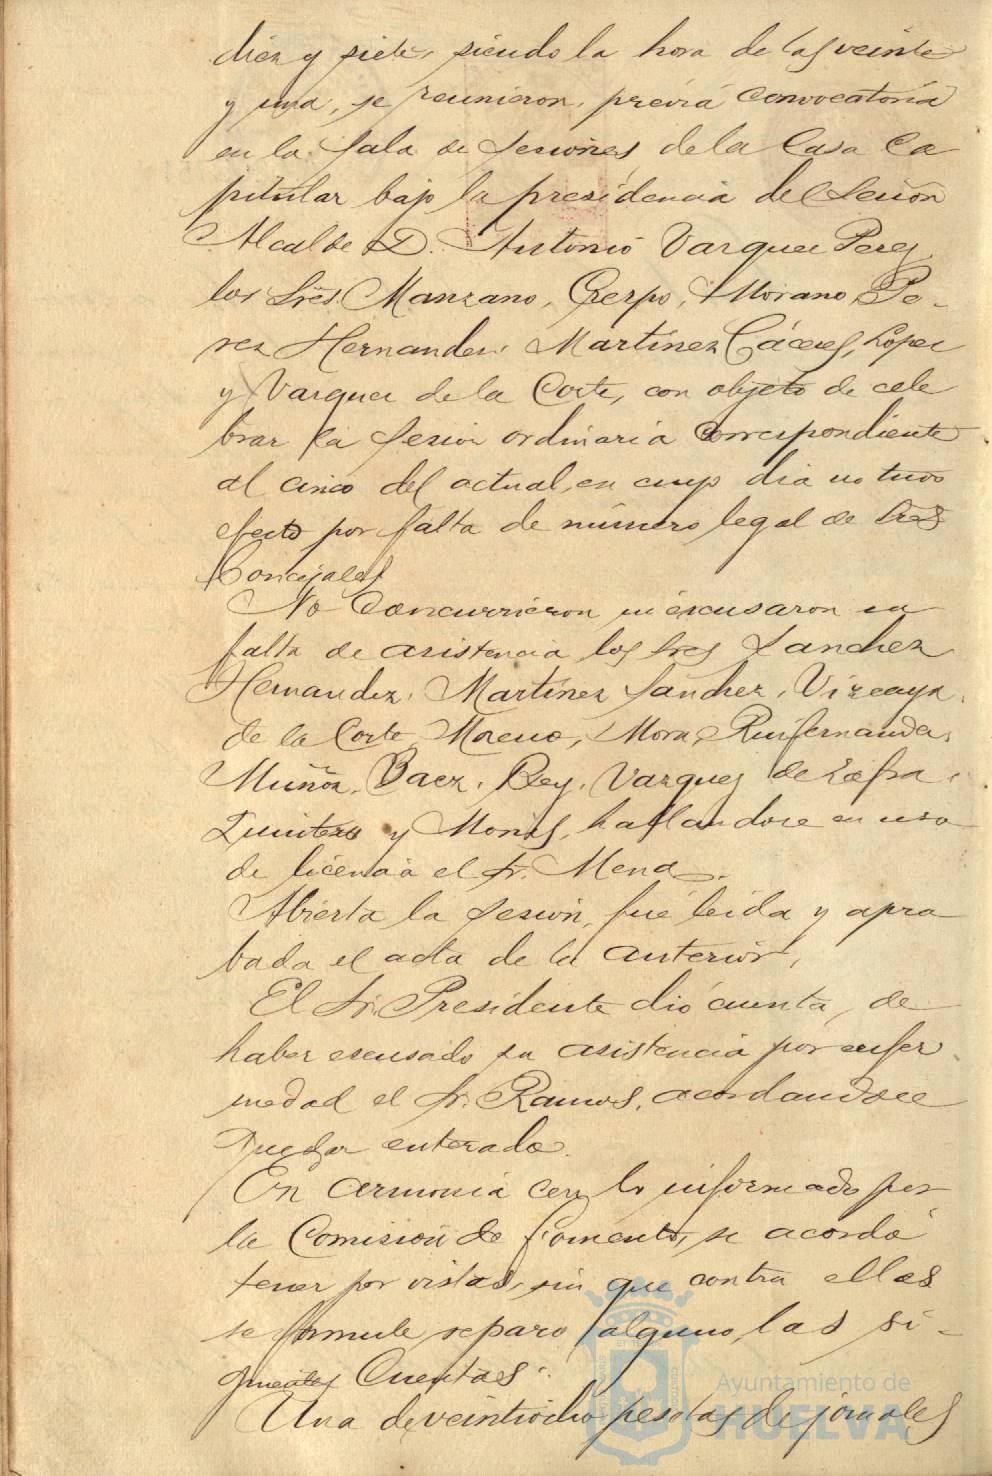 diez y siete, siendo la hora de las veinte
y una, se reunieron, previa convocatoria
en la Sala de Sesiones de la Casa Ca
pitular bajo la presidencia del Señor
Alcalde D. Antonio Vazquez Perez,
los Sres. Manzano, Crespo, Morano, Pe-
rez Hernandez, Martinez Cáceres, López
y Vazquez de la Corte, con objeto de cele
brar la sesion ordinaria correspondiente
al cinco del actual, en cuyo dia no tuvo
efecto por falta de número legal de Sres
Concejales
No concurrieron ni excusaron su
falta de asistencia los Sres Sanchez
Hernandez, Martinez Sanchez, Vizcaya,
de la Corte, Moreno, Mora, Ruifernandez,
Muñoz, Baez, Rey, Vazquez de Zafra,
Quintero y Mon, hallandose en uso
de licencia el Sr. Mena.
Abierta la sesion, fué leida y apro
bada el acta de la anterior,
El Sr. Presidente dió cuenta, de
haber escusado su asistencia por enfer
medad el Sr. Ramos, acordandose
quedar enterado.
En armonia con lo informado por
la Comisión de Fomento, se acordó
tener por vistas, sin que contra ellas
se formule reparo alguno, las si-
guientes Cuentas:
Una de veintiocho pesetas de jornales
Ayuntamiento de
HUELVA